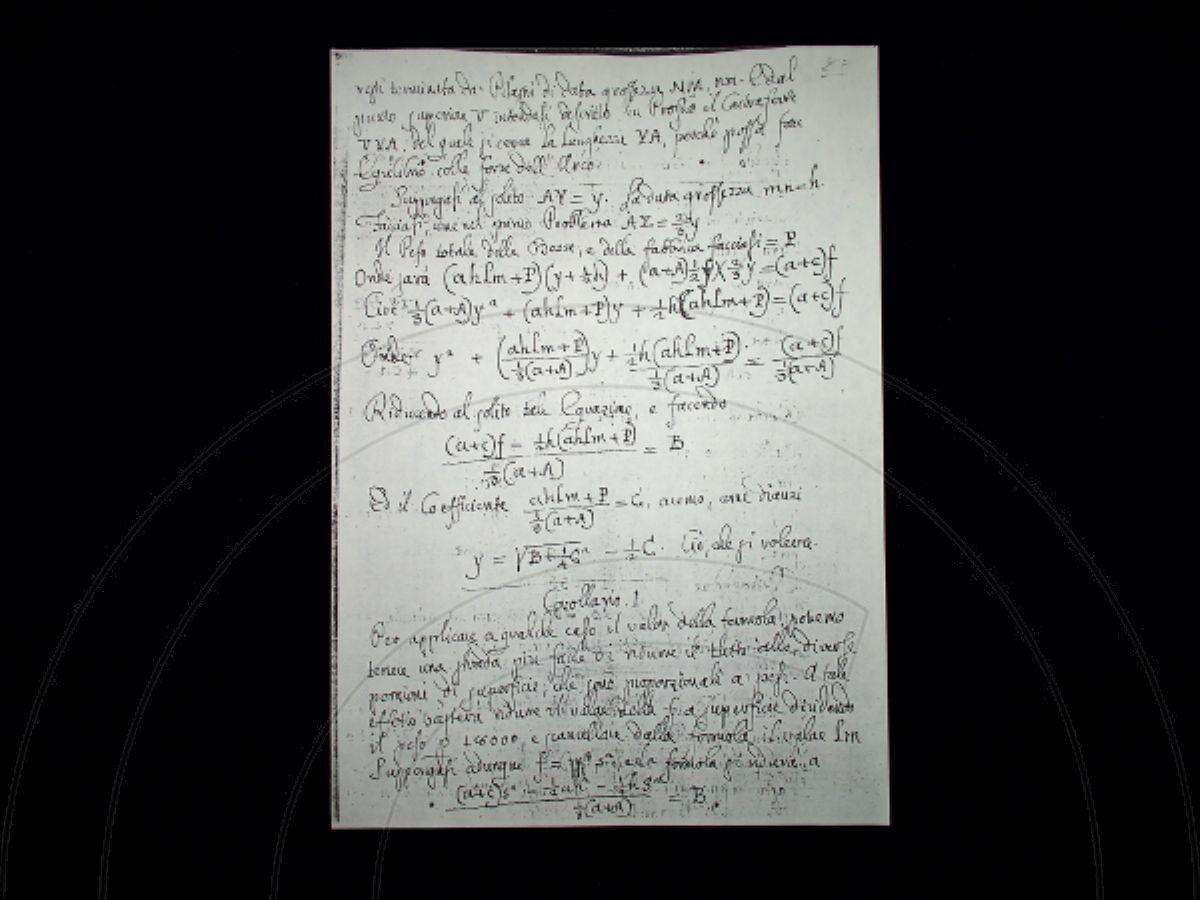 terminata da Pilastri di data grossezza NM, ma dal
punto superiore V intendasi descritto in Profilo il Contraforte
VXA, del quale si cerca la Lunghezza YA, perché possa fare
Equilibrio colle forze dell' Arco.
Suppongasi al solito AY = y. La data grossezza mn = h.
Facciasi, come nel primo Problema AZ = ⅔y
Il Peso totale delle Basse, e della fabbrica facciasi = P
Onde sarà (ahLm+P)(y+½h) + (a+A)½y × ⅔y = (a+c)f
Cioè ⅓(a+A)y² + (ahLm+P)y + ½h(ahLm+P) = (a+c)f
Onde y² + (ahLm+P / ⅓(a+A))y + ½h(ahLm+P) / ⅓(a+A) = (a+c)f / ⅓(a+A)
Riducendo al solito tale Equazione, e facendo
(a+c)f − ½h(ahLm+P) / ⅓(a+A) = B
Ed il Coefficiente ahLm+P / ⅓(a+A) = C, avremo, come dianzi
y = √B+¼C² − ½C. Ciò, che si voleva.
Corollario. 1.
Per applicare a qualche caso il valor della formola, potremo
tenere una strada più facile di ridurre il tutto alle diverse
porzioni di superficie, che sono proporzionali a' pesi. A tale
effetto basterà ridurre il valore della f a superficie dividendo
il peso, e cancellare dalla formola il Lm
Suppongasi adunque f = s², e la formola si ridurrà a
(a+c)s² − ½ah² − ½h / ⅓(a+A) = B.